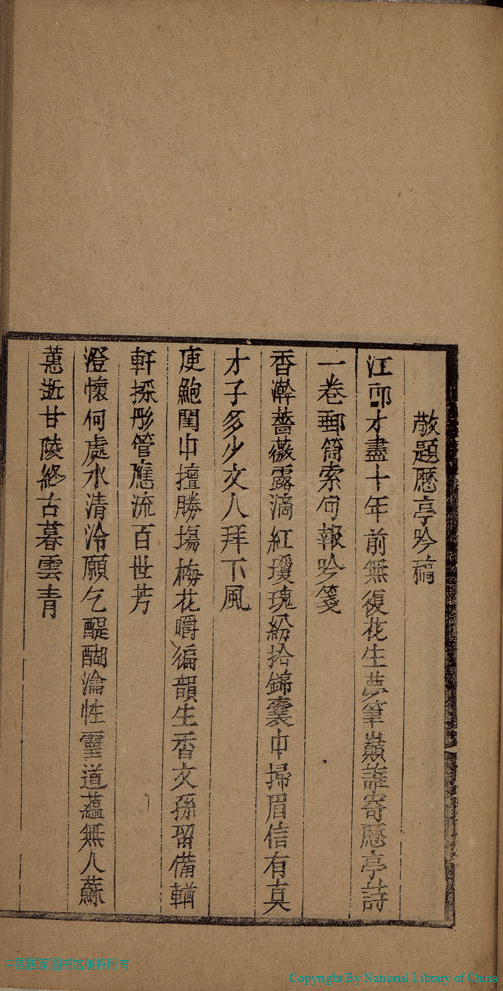 敬題歷亭吟稿
江郎才盡十年前無復花生夢筆巔誰寄歷亭詩
一卷郵筒索句報吟箋
香澣薔薇露滴紅瓊瑰紛拾錦囊中掃眉信有真
才子多少文人拜下風
庾鮑閨中擅勝場梅花嚼徧韻生香文孫留備輶
軒採彤管應流百世芳
澄懷何處水清泠願乞醍醐瀹性靈道蘊無人蘇
蕙逝甘陵終古暮雲青
中国国家图书馆版权所有
Copyright By National Library of China